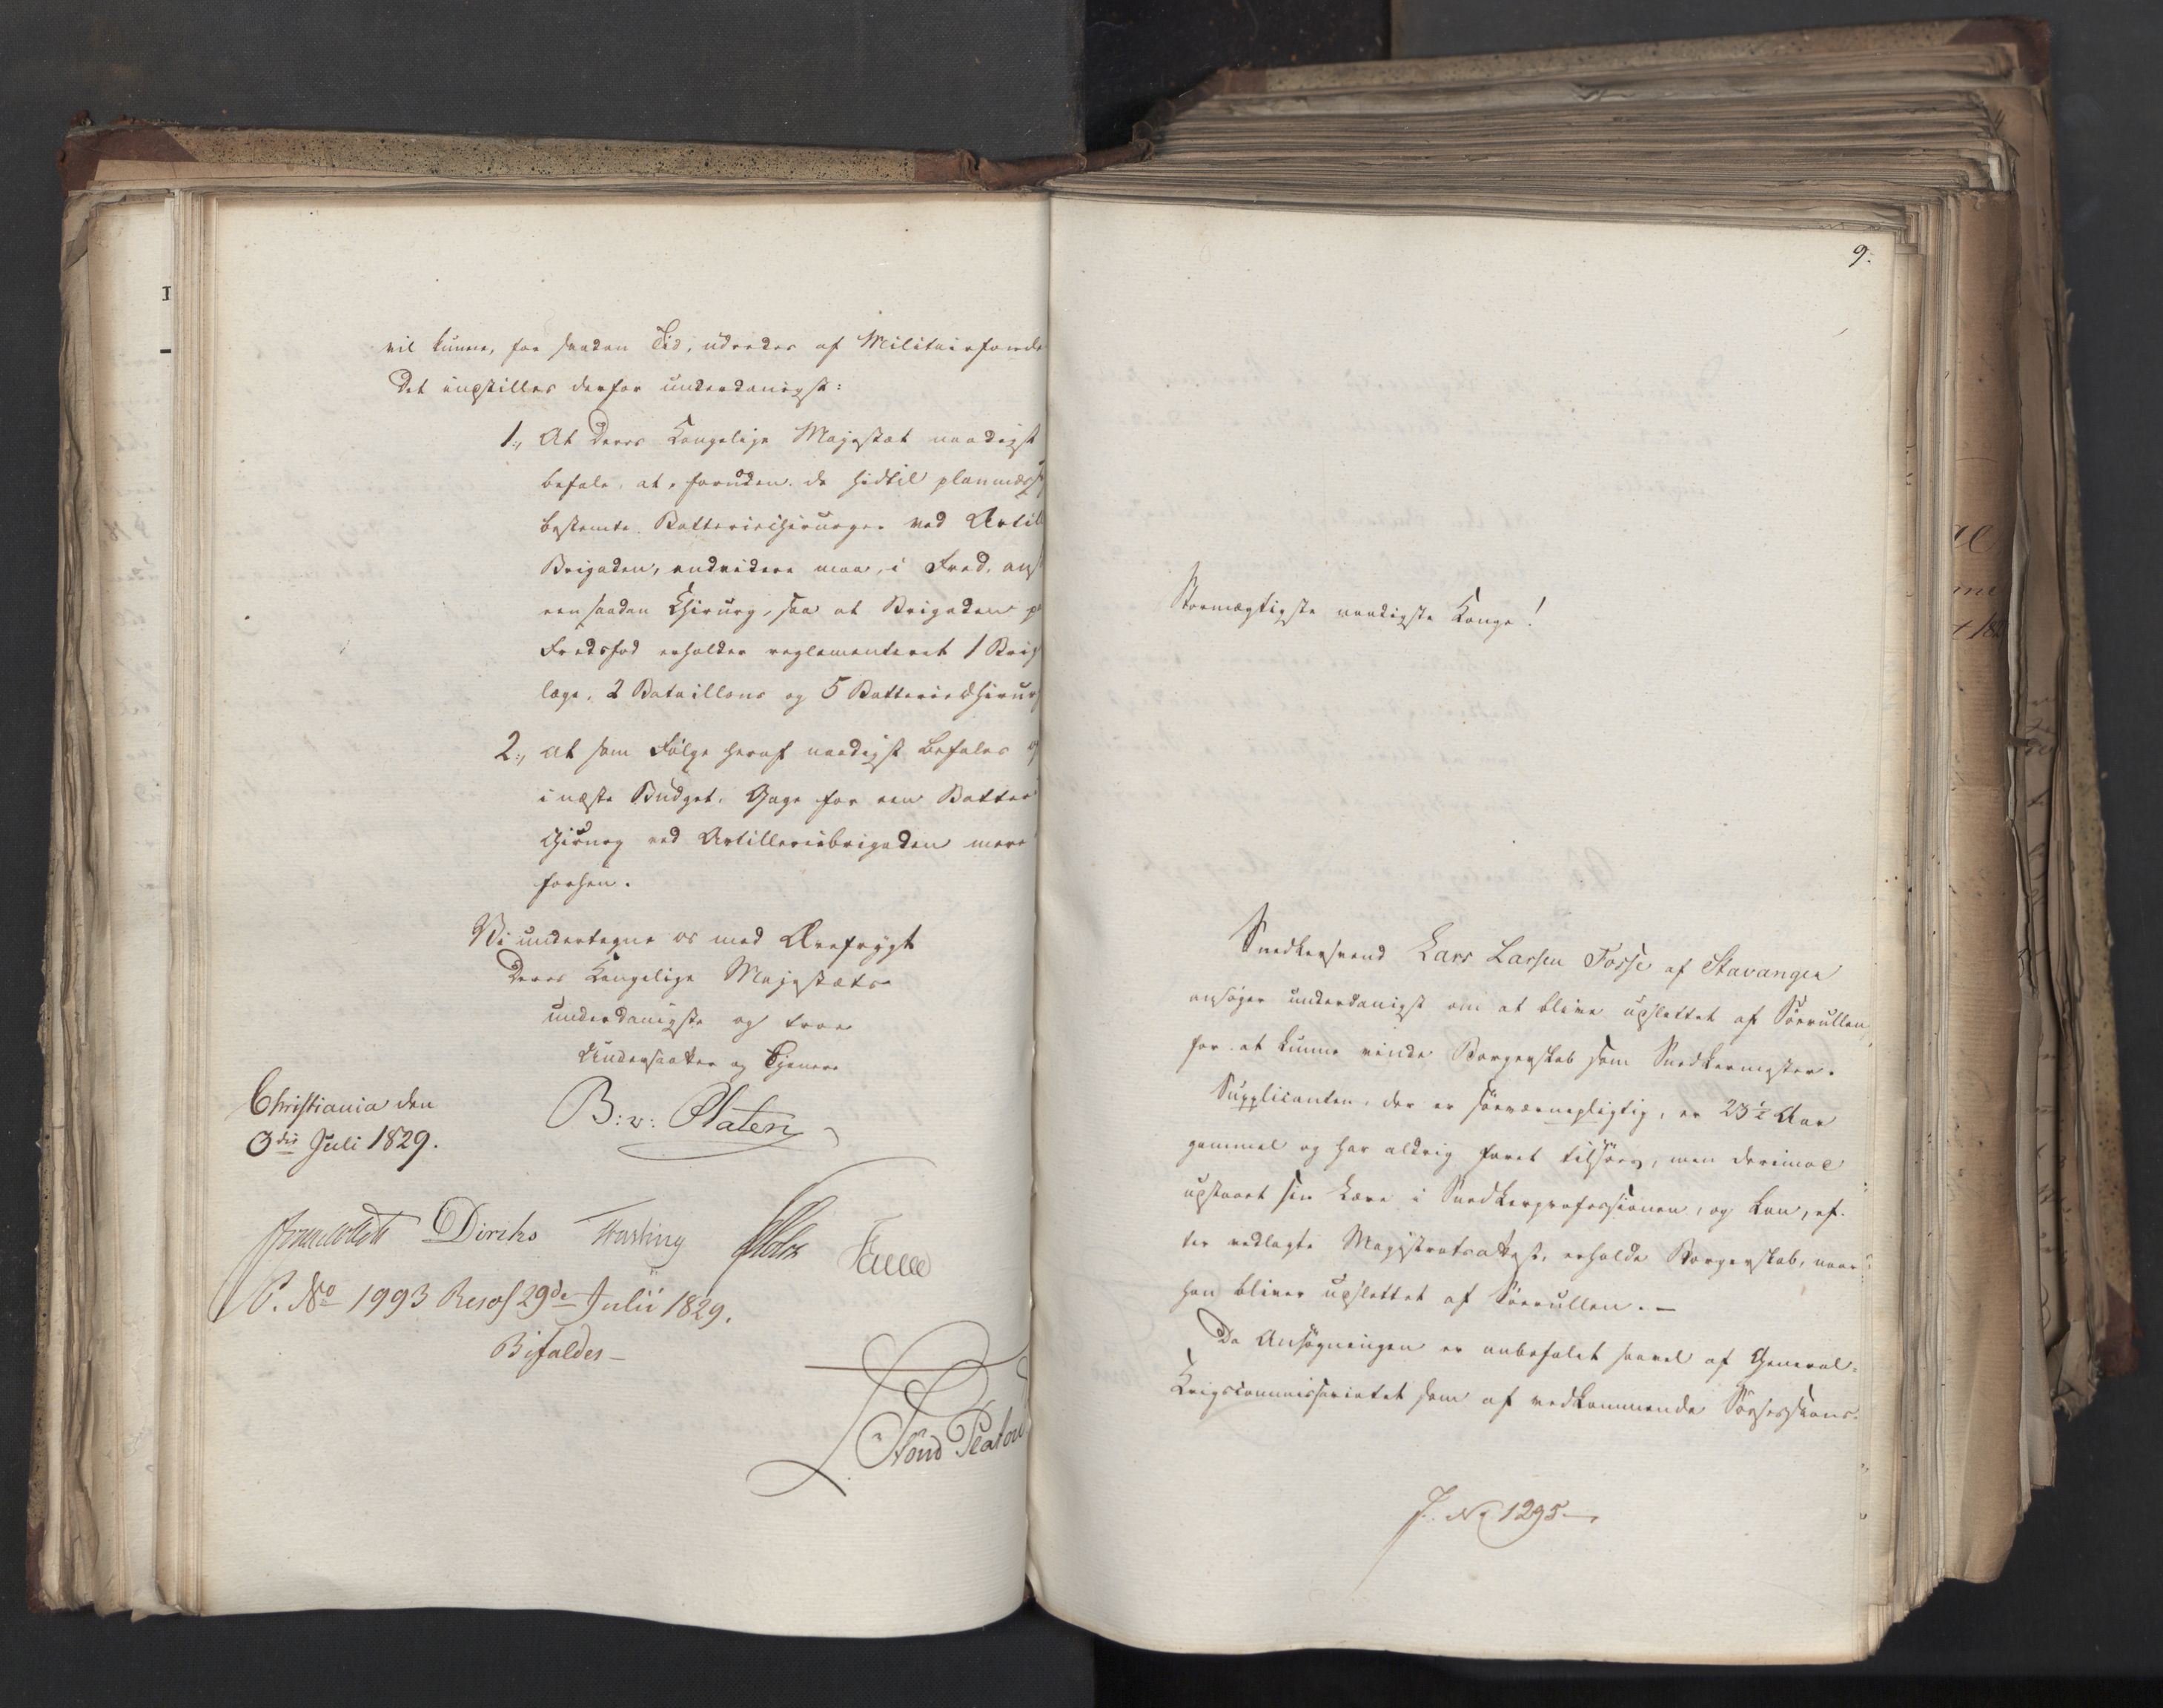 vil kunne, for saadan Tid, udredes af Militairfonde
Det indstilles derfor underdanigst:
1., At Deres Kongelige Majestæt naadigst
befale, at, foruden de hidtil planmæss
bestemte Batteriechirurger ved Artill
Brigaden, endvidere maa, i Fred, ans
een saadan Chirurg, saa at Brigaden p
Fredsfod erholder reglementeret 1 Brig
læge, 2 Bataillons og 5 Batteriechirurg
2., at som Følge heraf naadigst befales
i næste Budget, Gage for een Batter
Chirurg ved Artilleriebrigaden mere
forhen.
Vi undertegne os med Ærefrygt
Deres Kongelige Majestæts
underdanigste og troe
Undersaatter og Tjenere
Christiania den
3die Juli 1829.
B: v: Platen
Diriks Fasting Holst
P. No 1993 Resol 29de Julii 1829.
Bifaldes—
9.
Stormægtigste naadigste Konge!
Snedkersvend Lars Larsen Fosse af Stavanger
ansøger underdanigst om at blive udslettet af Søerullen,
for at kunne vinde Borgerskab som Snedkermester.
Supplicanten, der er søeværnepligtig, er 23½ Aar
gammel og har aldrig faret tilsøes, men derimod
udstaaet sin Lære i Snedkerprofessionen, og kan, ef-
ter vedlagte Magistratsattest, erholde Borgerskab, naar
han bliver udslettet af Søerullen. —
Da Ansøgningen er anbefalet saavel af General-
Krigscommissariatet som af vedkommende Søesessions-
J. No 1295—